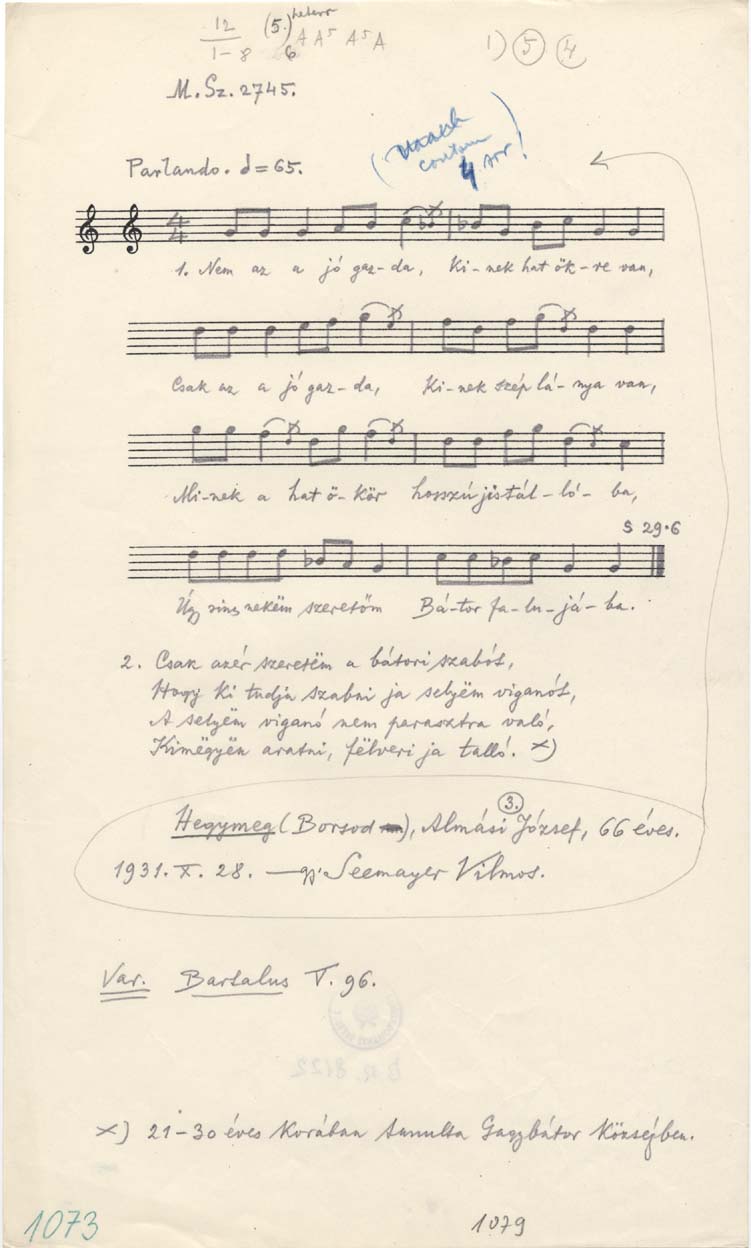 12
1-8
(5.) heterr
6
A A⁵ A⁵ A
1) 5 4
M. Sz. 2745.
4 sor!
Parlando. d = 65.
1. Nem az a jó gaz-da, Ki-nek hat ök-re van,
Csak az a jó gaz-da, Ki-nek szép lá-nya van,
Mi-nek a hat ö-kör hosszú jistál-ló-ba,
S 29·6
Úgy sincs nekëm szeretőm Bá-tor fa-lu-já-ba.
2. Csak azér szeretëm a bátori szabót,
Hogy ki tudja szabni ja selyëm viganót,
A selyëm viganó nem parasztra való,
Kimëgyën aratni, fëlveri ja talló. x)
3.
Hegymeg (Borsod), Almási József, 66 éves.
1931. X. 28. gy. Seemayer Vilmos.
Var. Bartalus V. 96.
x) 21-30 éves korában tanulta Gagybátor községben.
1073
1079